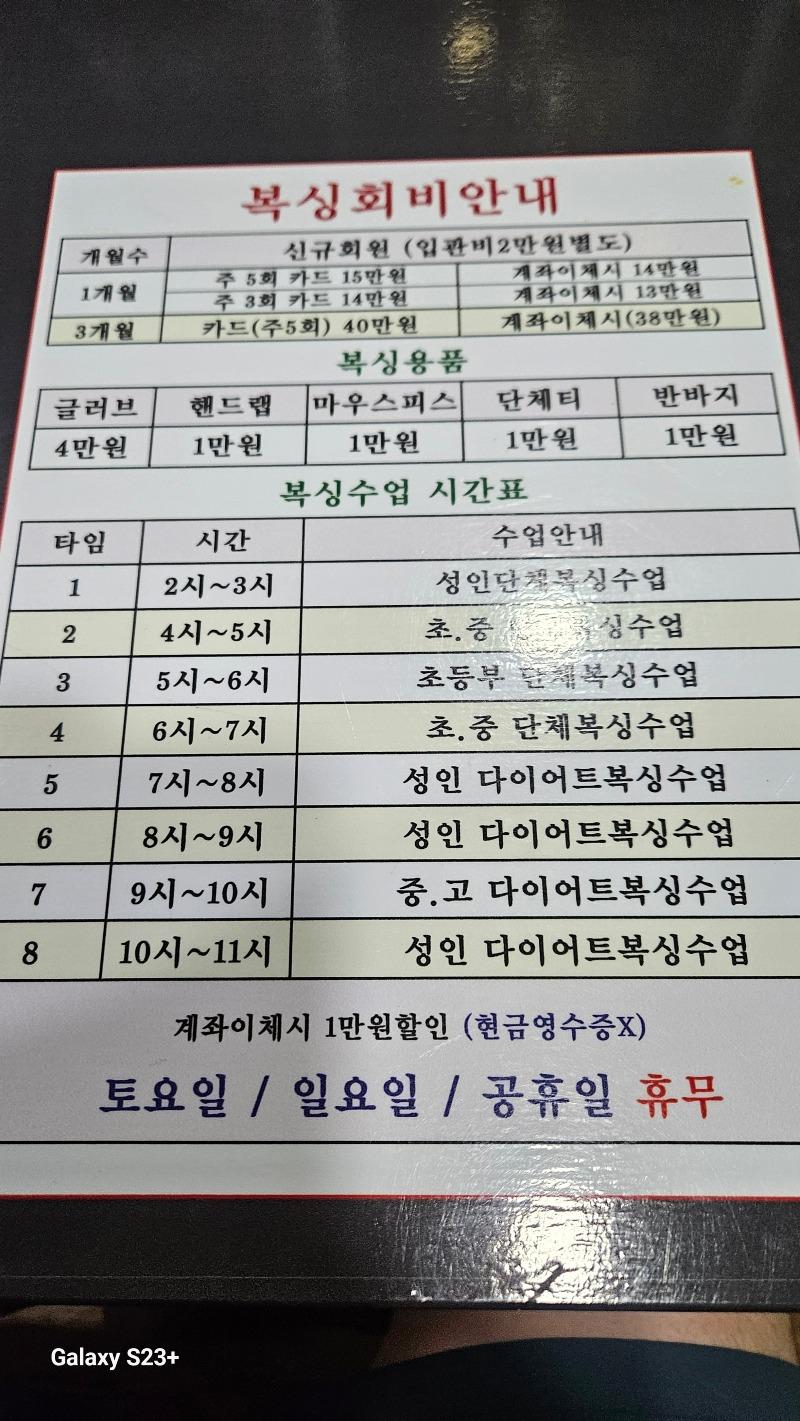 복싱회비안내
개월수 신규회원 (입관비2만원별도)
1개월 주 5회 카드 15만원 계좌이체시 14만원
주 3회 카드 14만원 계좌이체시 13만원
3개월 카드(주5회) 40만원 계좌이체시(38만원)
복싱용품
글러브 핸드랩 마우스피스 단체티 반바지
4만원 1만원 1만원 1만원 1만원
복싱수업 시간표
타임 시간 수업안내
1 2시~3시 성인단체복싱수업
2 4시~5시 초.중
3 5시~6시 초등부 단체복싱수업
4 6시~7시 초.중 단체복싱수업
5 7시~8시 성인 다이어트복싱수업
6 8시~9시 성인 다이어트복싱수업
7 9시~10시 중.고 다이어트복싱수업
8 10시~11시 성인 다이어트복싱수업
계좌이체시 1만원할인 (현금영수증X)
토요일 / 일요일 / 공휴일 휴무
Galaxy S23+